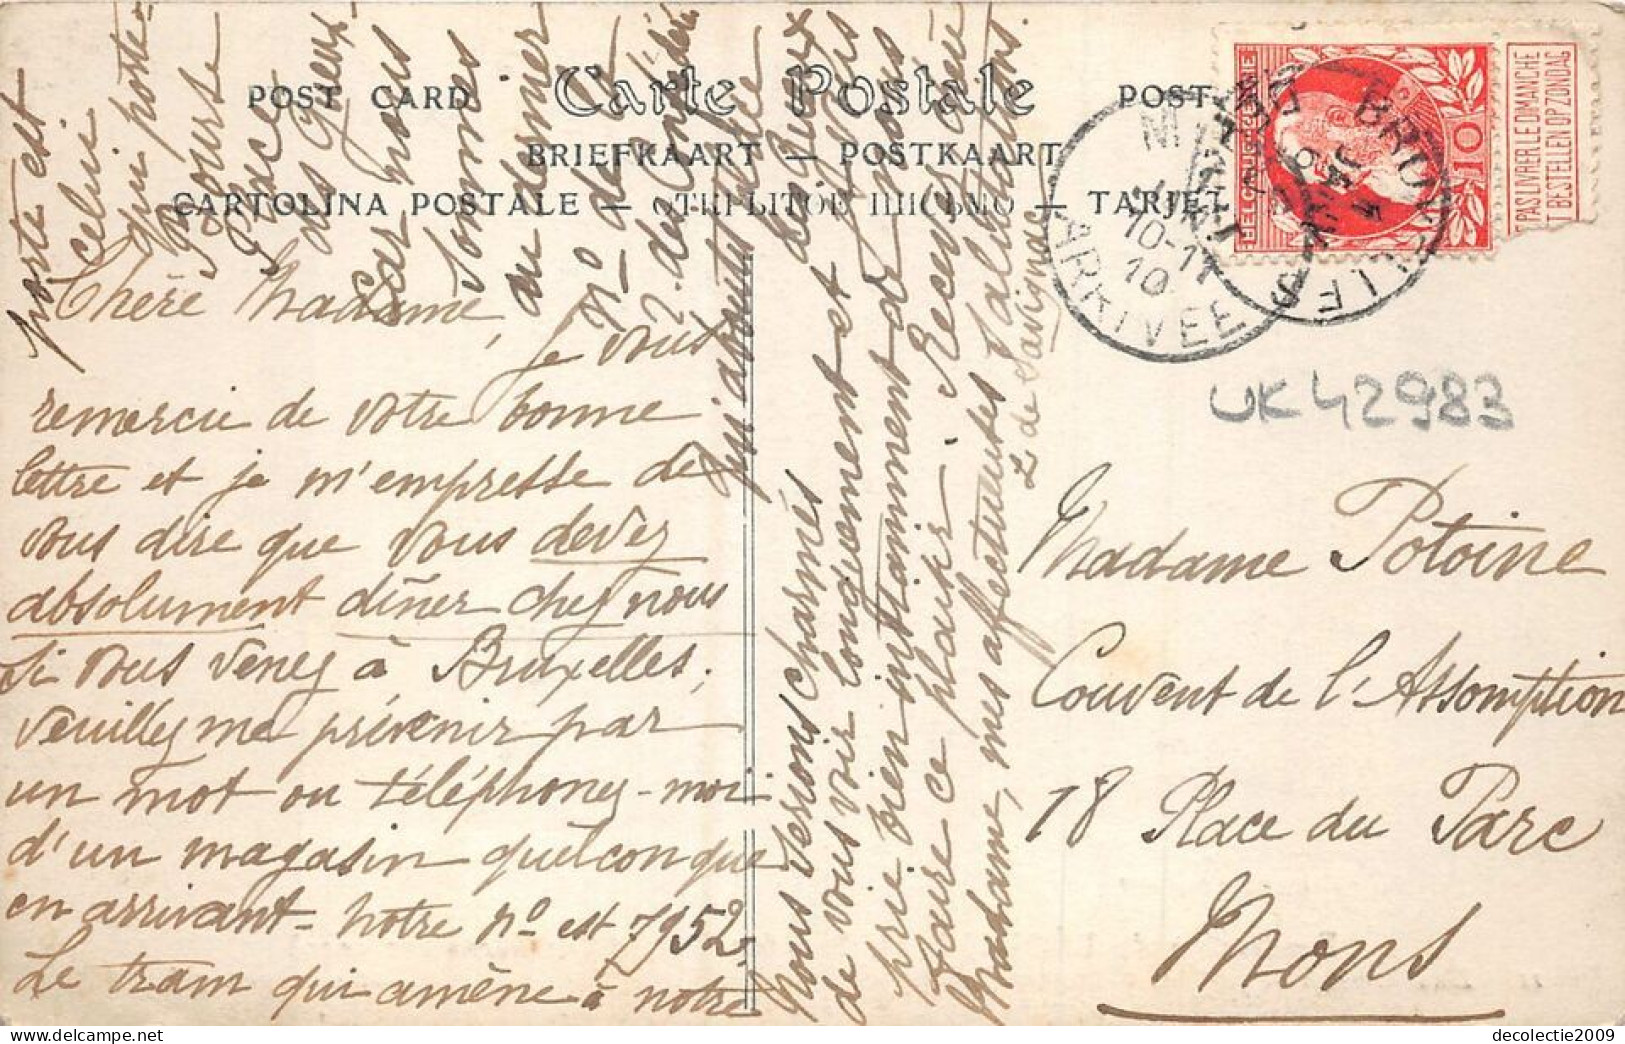 POST CARD
Carte Postale
POST
BRIEFKAART — POSTKAART
CARTOLINA POSTALE —
— TARJET
Chère Madame,
je vous
remercie de votre bonne
lettre et je m'empresse de
vous dire que vous devez
absolument dîner chez nous
si vous venez à Bruxelles;
veuillez me prévenir par
un mot ou téléphonez-moi
d'un magasin quelconque
en arrivant - notre nº est 7952.
Le tram qui amène à notre
porte est
celui
qui porte
Bourse
Place
des Gueux
car nous
sommes
au dernier
nº de la
r. des
qui aboutit place des Gueux
Nous serions charmés
de vous voir longuement et
prie bien instamment de nous
faire ce plaisir. Recevez chère
Madame, mes affectueuses salutations.
L de Savignac
BELGIQUE
10
NE PAS LIVRER LE DIMANCHE
NIET BESTELLEN OP ZONDAG
BRUX
10-11
10
ARRIVEE
UK42983
Madame Potoine
Couvent de l'Assomption
18 Place du Parc
Mons
decolectie2009